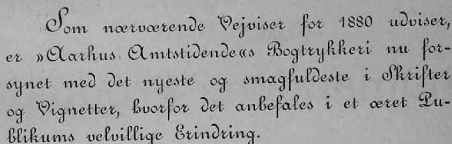 Som nærværende Vejviser for 1880 udviser,
er »Aarhus Amtstidende«s Bogtrykkeri nu for-
synet med det nyeste og smagfuldeste i Skrifter
og Vignetter, hvorfor det anbefales i et æret Pu-
blikums velvillige Erindring.